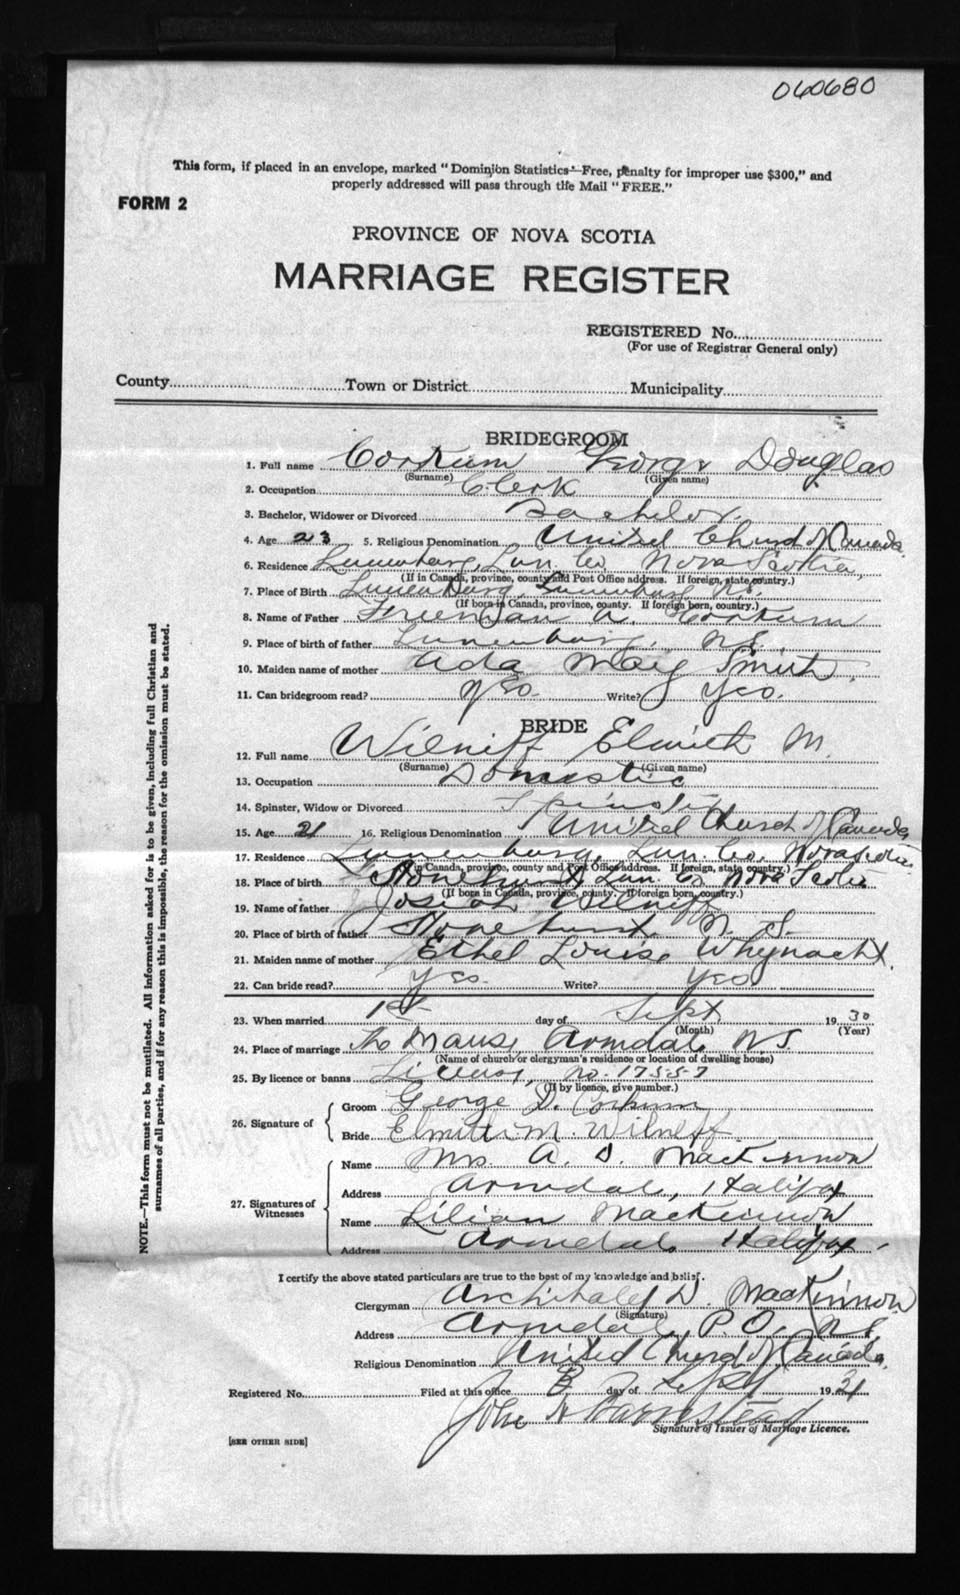 060680
This form, if placed in an envelope, marked "Dominion Statistics—Free, penalty for improper use $300," and
properly addressed will pass through the Mail "FREE."
FORM 2
PROVINCE OF NOVA SCOTIA
MARRIAGE REGISTER
REGISTERED No.
(For use of Registrar General only)
County Town or District Municipality
BRIDEGROOM
1. Full name Corkum George Douglas
(Surname) (Given name)
2. Occupation Clerk
3. Bachelor, Widower or Divorced Bachelor
4. Age 23 5. Religious Denomination United Church of Canada
6. Residence Lunenburg, Lun. Co Nova Scotia,
(If in Canada, province, county and Post Office address. If foreign, state country.)
7. Place of Birth Lunenburg, Lunenburg N.S.
(If born in Canada, province, county. If foreign born, country.)
8. Name of Father Freeman A. Corkum
9. Place of birth of father Lunenburg, N.S.
10. Maiden name of mother Ada May Smith,
11. Can bridegroom read? Yes. Write? Yes.
BRIDE
12. Full name Wilneff M.
(Surname) (Given name)
13. Occupation Domestic
14. Spinster, Widow or Divorced Spinster
15. Age 21 16. Religious Denomination United Church of Canada
17. Residence Lunenburg, Lun. Co. Nova Scotia
(If in Canada, province, county and Post Office address. If foreign, state country.)
18. Place of birth Stonehurst Lun. Co Nova Scotia
(If born in Canada, province, county. If foreign born, country.)
19. Name of father Josiah Wilneff
20. Place of birth of father Stonehurst N. S.
21. Maiden name of mother Ethel Louise Whynacht.
22. Can bride read? Yes. Write? Yes
23. When married 1st day of Sept 19 30
(Month) (Year)
24. Place of marriage The Manse, Armdale, N.S.
(Name of church or clergyman's residence or location of dwelling house)
25. By licence or banns License, No. 17557
(If by licence, give number.)
26. Signature of
Groom George D. Corkum
Bride M Wilneff
27. Signatures of Witnesses
Name Mrs. A. D. MacKinnon
Address Armdale, Halifax
Name Lilian MacKinnon
Address Armdale Halifax
I certify the above stated particulars are true to the best of my knowledge and belief.
Clergyman Archibald D. MacKinnon
(Signature)
Address Armdale, P.O., N.S
Religious Denomination United Church of Canada,
Registered No. Filed at this office day of Sept 19
John Barnstead
Signature of Issuer of Marriage Licence.
[SEE OTHER SIDE]
NOTE.—This form must not be mutilated. All information asked for is to be given, including full Christian and
surnames of all parties, and if for any reason this is impossible, the reason for the omission must be stated.